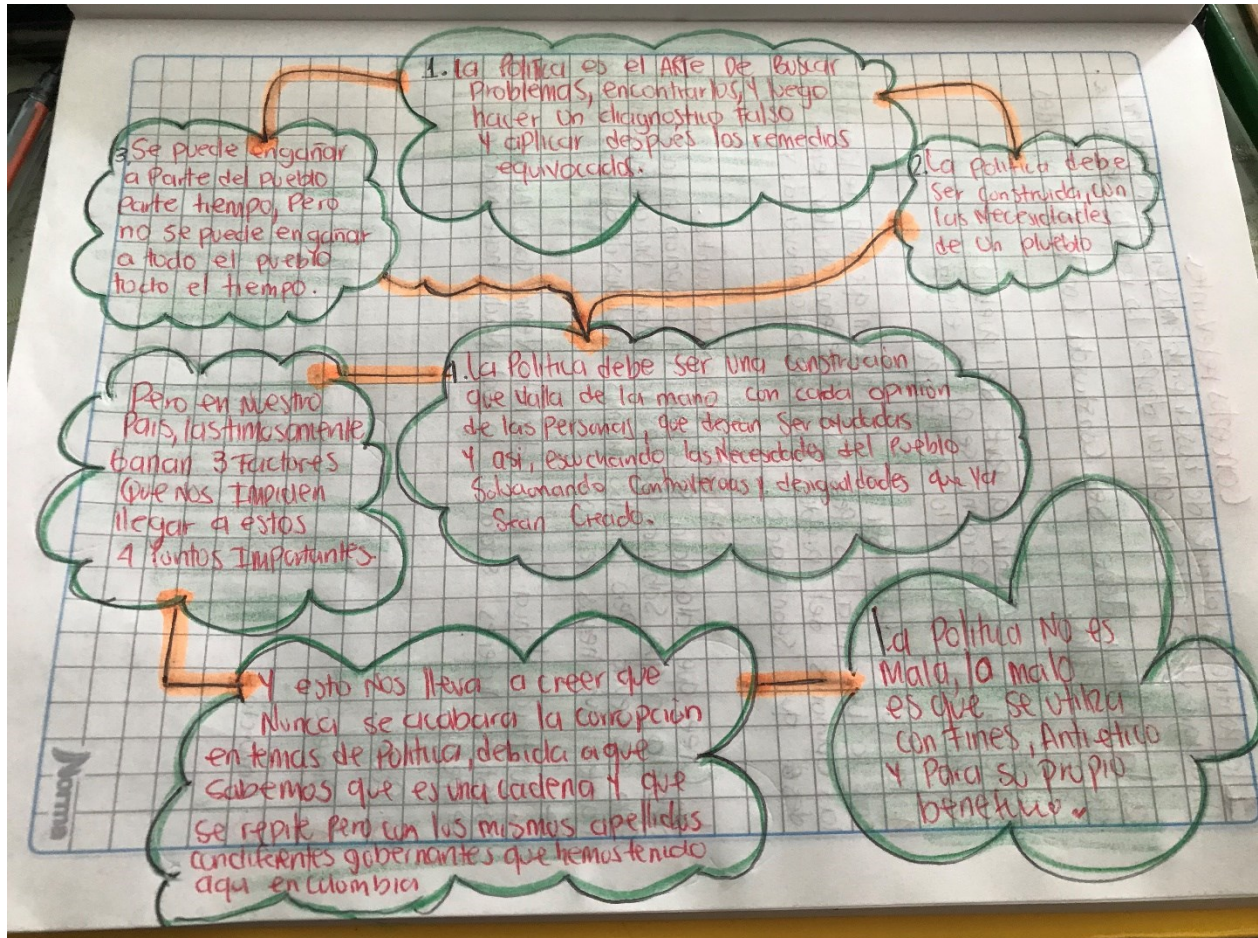 1. La Politica es el Arte De Buscar
Problemas, encontrarlos, y luego
hacer un diagnostico falso
y aplicar después los remedios
equivocados.
2. La politica debe
ser construida, con
las Necesidades
de un plueblo
3. Se puede engañar
a Parte del pueblo
Parte tiempo, Pero
no se puede engañar
a todo el pueblo
todo el tiempo.
4. La Politica debe ser una construcion
que valla de la mano con cada opinion
de las Personas, que desean ser ayudadas
Y asi, escuchando las Necesidades del Pueblo
Solucionando Controversias y desigualdades que ya
Sean Creado.
Pero en Nuestro
Pais, lastimosamente
Ganan 3 Factores
Que Nos Impiden
llegar a estos
4 Puntos Importantes
Y esto Nos lleva a creer que
Nunca se acabara la corrupción
en temas de Politica, debida a que
Sabemos que es una cadena Y que
se repite pero con los mismos apellidos
con diferentes gobernantes que hemos tenido
aqui en Colombia
La Politica No es
Mala, lo malo
es que se utiliza
con Fines, Antietico
Y Para su propio
beneficio
Norma